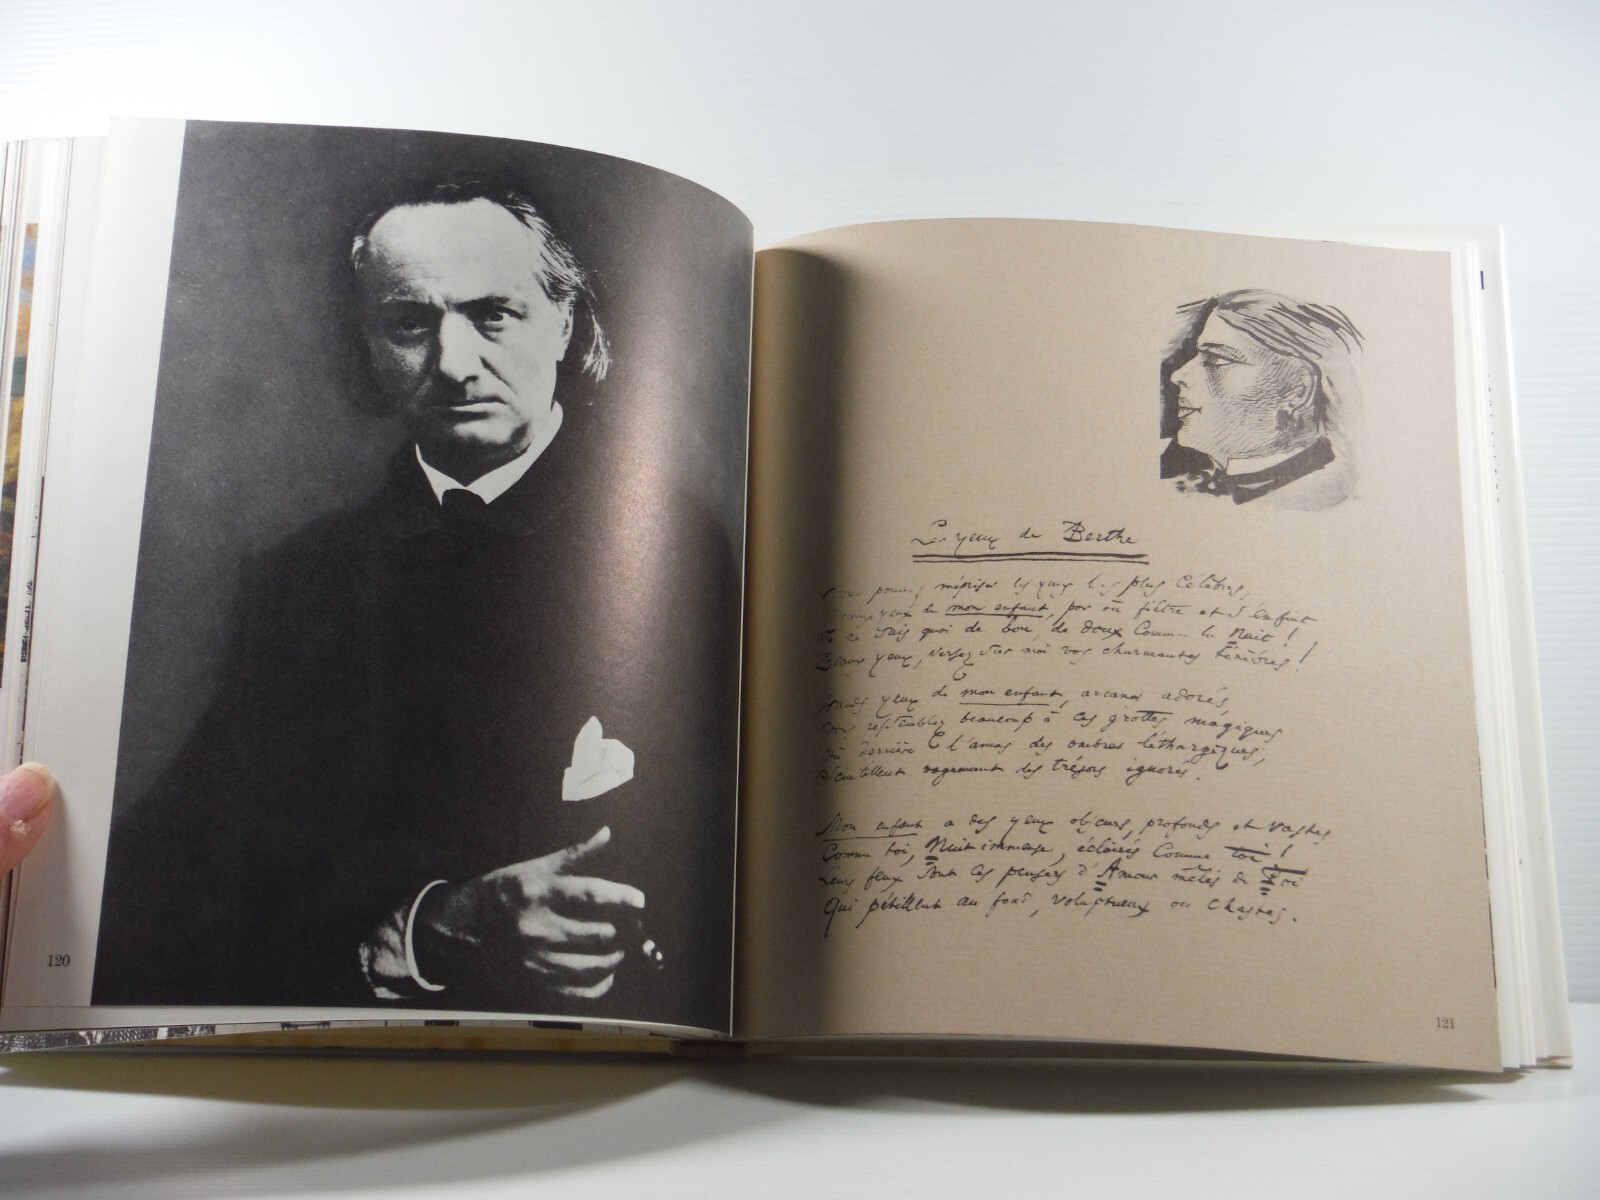 120
Les yeux de Berthe
Vous pouvez mépriser les yeux les plus célèbres,
Beaux yeux de mon enfant, par où filtre et s'enfuit
Je ne sais quoi de bon, de doux Comme la Nuit !
Beaux yeux, versez sur moi vos charmantes ténèbres !
Grands yeux de mon enfant, arcanes adorés,
Vous ressemblez beaucoup à ces grottes magiques
Où, derrière l'amas des ombres léthargiques,
Scintillent vaguement des trésors ignorés.
Mon enfant a des yeux obscurs, profonds et vastes
Comme toi, Nuit immense, éclairés Comme toi !
Leurs feux sont ces pensers d'Amour mêlés de Foi
Qui pétillent au fond, voluptueux ou chastes.
121